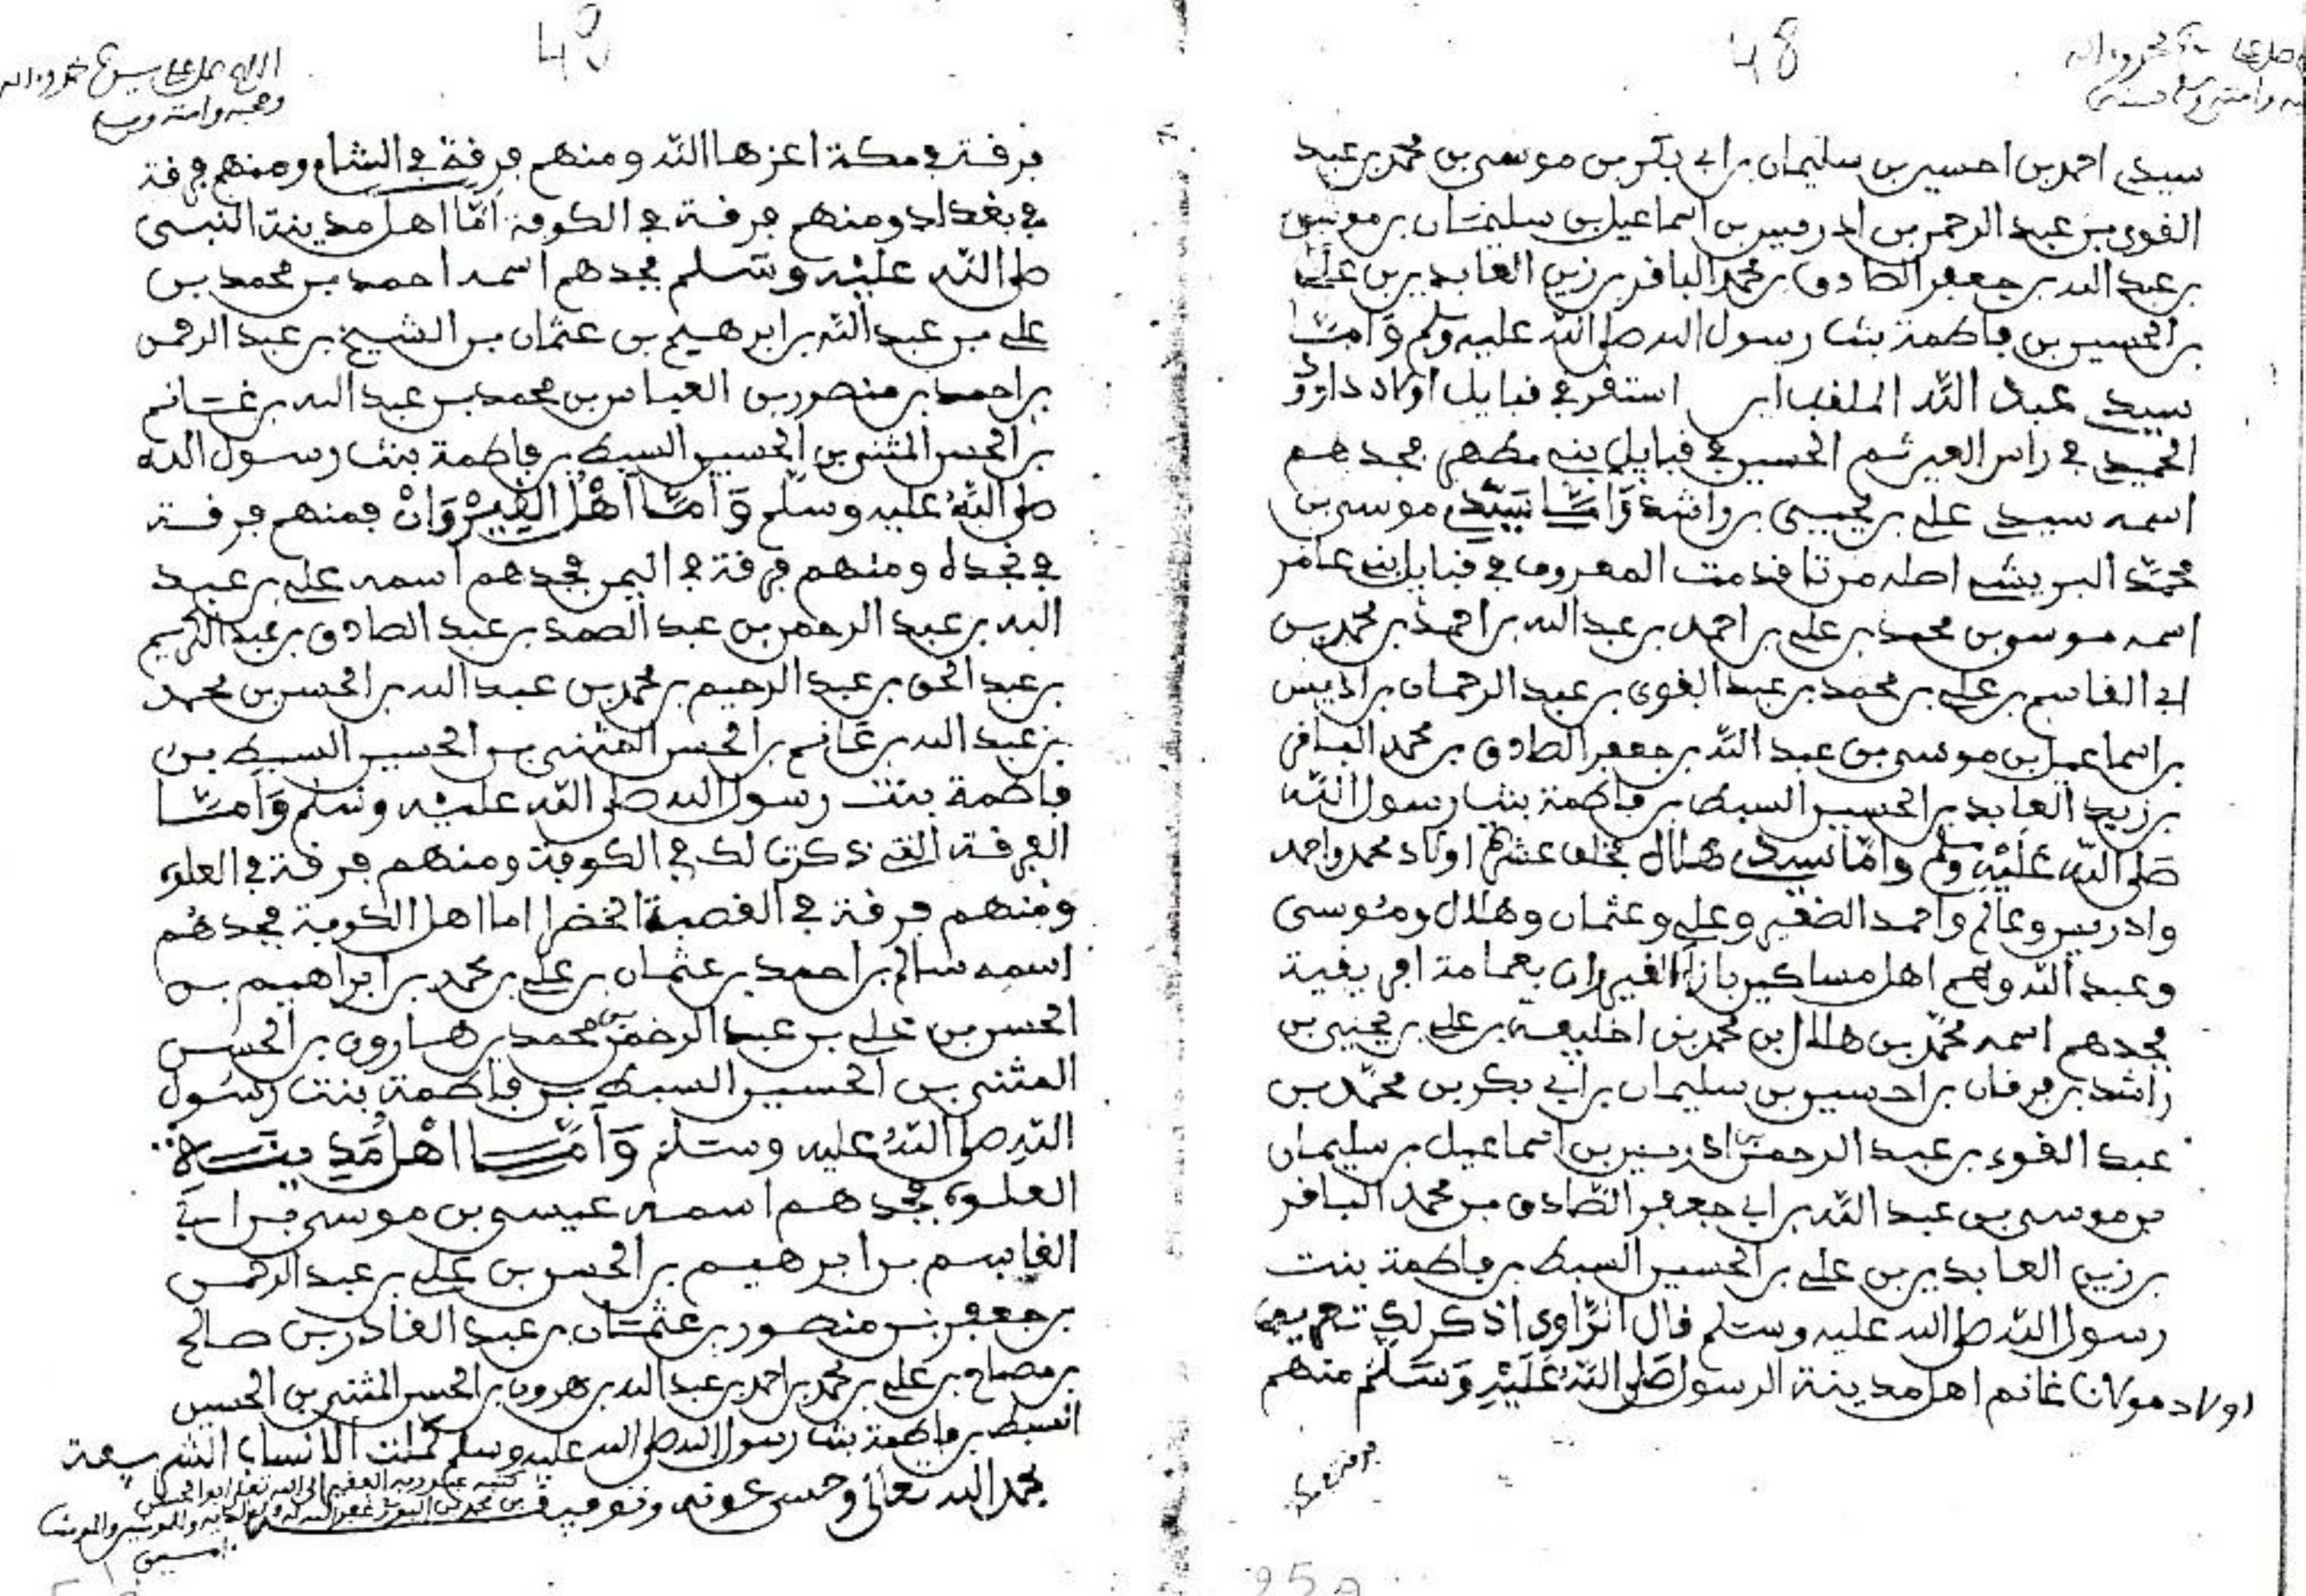 48
سيدي احمد بن احسين بن سليمان بن ابي بكر بن موسى بن محمد بن عبد
القوي بن عبد الرحمن بن ادريس بن اسماعيل بن سليمان بن موسى
بن عبد الله بن جعفر الصادق بن محمد الباقر بن زين العابدين بن علي
بن الحسين بن فاطمة بنت رسول الله صلى الله عليه وسلم وَأمَّا
سيدي عبد الله الملقب استقر في قبايل اولاد داوود
الحميد في راس العين ثم الحسين في قبايل بني مطهر فجدهم
اسمه سيدي علي بن يحيى بن راشد وَأمَّا سَيّدي موسى بن
محمّد البريشي اصله من تافدمت المعروف في قبايل بني عامر
اسمه موسى بن محمد بن علي بن احمد بن عبد الله بن احمد بن محمد بن
ابي القاسم بن علي بن محمد بن عبد القوي بن عبد الرحمان بن ادريس
بن اسماعيل بن موسى بن عبد الله بن جعفر الصادق بن محمد الباقر
بن زيد العابد بن الحسين السبط بن فاطمة بنت رسول الله
صَلى الله عَلَيْهِ وسلم وامّا سيدي هلال فخلف عشرة اولاد محمد واحمد
وادريس وغانم واحمد الصغير وعلي وعثمان وهلال ومُوسى
وعبد الله وهم اهل مساكين بازاء القيروان بعمامة افريقية
فجدهم اسمه محمّد بن هلال بن محمد بن اخليفة بن علي بن يحيى بن
راشد بن فرقان بن احسين بن سليمان بن ابي بكر بن محمّد بن
عبد القوي بن عبد الرحمن بن ادريس بن اسماعيل بن سليمان
بن موسى بن عبد الله بن ابي جعفر الصّادق بن محمد الباقر
بن زين العابدين بن علي بن الحسين السبط بن فاطمة بنت
رسول الله صلى الله عليه وسلم قال الرّاوي اذكر لك تعريف
اولاد مولانا غانم اهل مدينة الرسول صَلى اللهُ عَلَيْهِ وَسَلم منهم
فرقة في مكة
48
فرقة في مكة اعزها الله ومنهم فرقة في الشام ومنهم فرقة
في بغداد ومنهم فرقة في الكوفة امّا اهل مدينة النبي
صلى الله عليه وسلم فجدهم اسمه احمد بن محمد بن
علي بن عبد الله بن ابرهيم بن عثمان بن الشيخ بن عبد الرحمن
بن احمد بن منصور بن العباس بن محمد بن عبد الله بن غانم
بن الحسن المثنى بن الحسين السبط بن فاطمة بنت رسول الله
صلى اللهُ عليه وسلم وَأمَّا أهْلُ القَيْرْوَانْ فمنهم فرقة
في نجدة ومنهم فرقة في اليمن فجدهم اسمه علي بن عبد
الله بن عبد الرحمن بن عبد الصمد بن عبد الصادق بن عبد الكريم
بن عبد الحق بن عبد الرحيم بن محمد بن عبد الله بن الحسن بن محمد
بن عبد الله بن غانم بن الحسن المثنى بن الحسين السبط بن
فاطمة بنت رسول الله صلى الله عليه وسلم وَأمَّا
الفرقة التي ذكرت لك في الكوفة ومنهم فرقة في العلوي
ومنهم فرقة في القصبة الخضرا اما اهل الكوفة فجدهُم
اسمه سالم بن احمد بن عثمان بن علي بن محمد بن ابراهيم بن
الحسن بن علي بن عبد الرحمن بن محمد بن هارون بن الحسن
المثنى بن الحسين السبط بن فاطمة بنت رسُول
اللهِ صلى اللهُ عليه وسلم وَأمَّا أهْلُ مَدِينَة
العلوي فجدهم اسمه عيسى بن موسى بن ابي
القاسم بن ابرهيم بن الحسن بن علي بن عبد الرحمن
بن جعفر بن منصور بن عثمان بن عبد القادر بن صالح
بن مصباح بن علي بن محمد بن احمد بن عبد الله بن هرون بن الحسن المثنى بن الحسين
السبط بن فاطمة بنت رسول الله صلى الله عليه وسلم كملت الانساب الشريفة
بحمد الله تعالى وحسن عونه وتوفيقه
كتبه عبد ربه الفقير الى الله تعلى ابو الحسن
امين